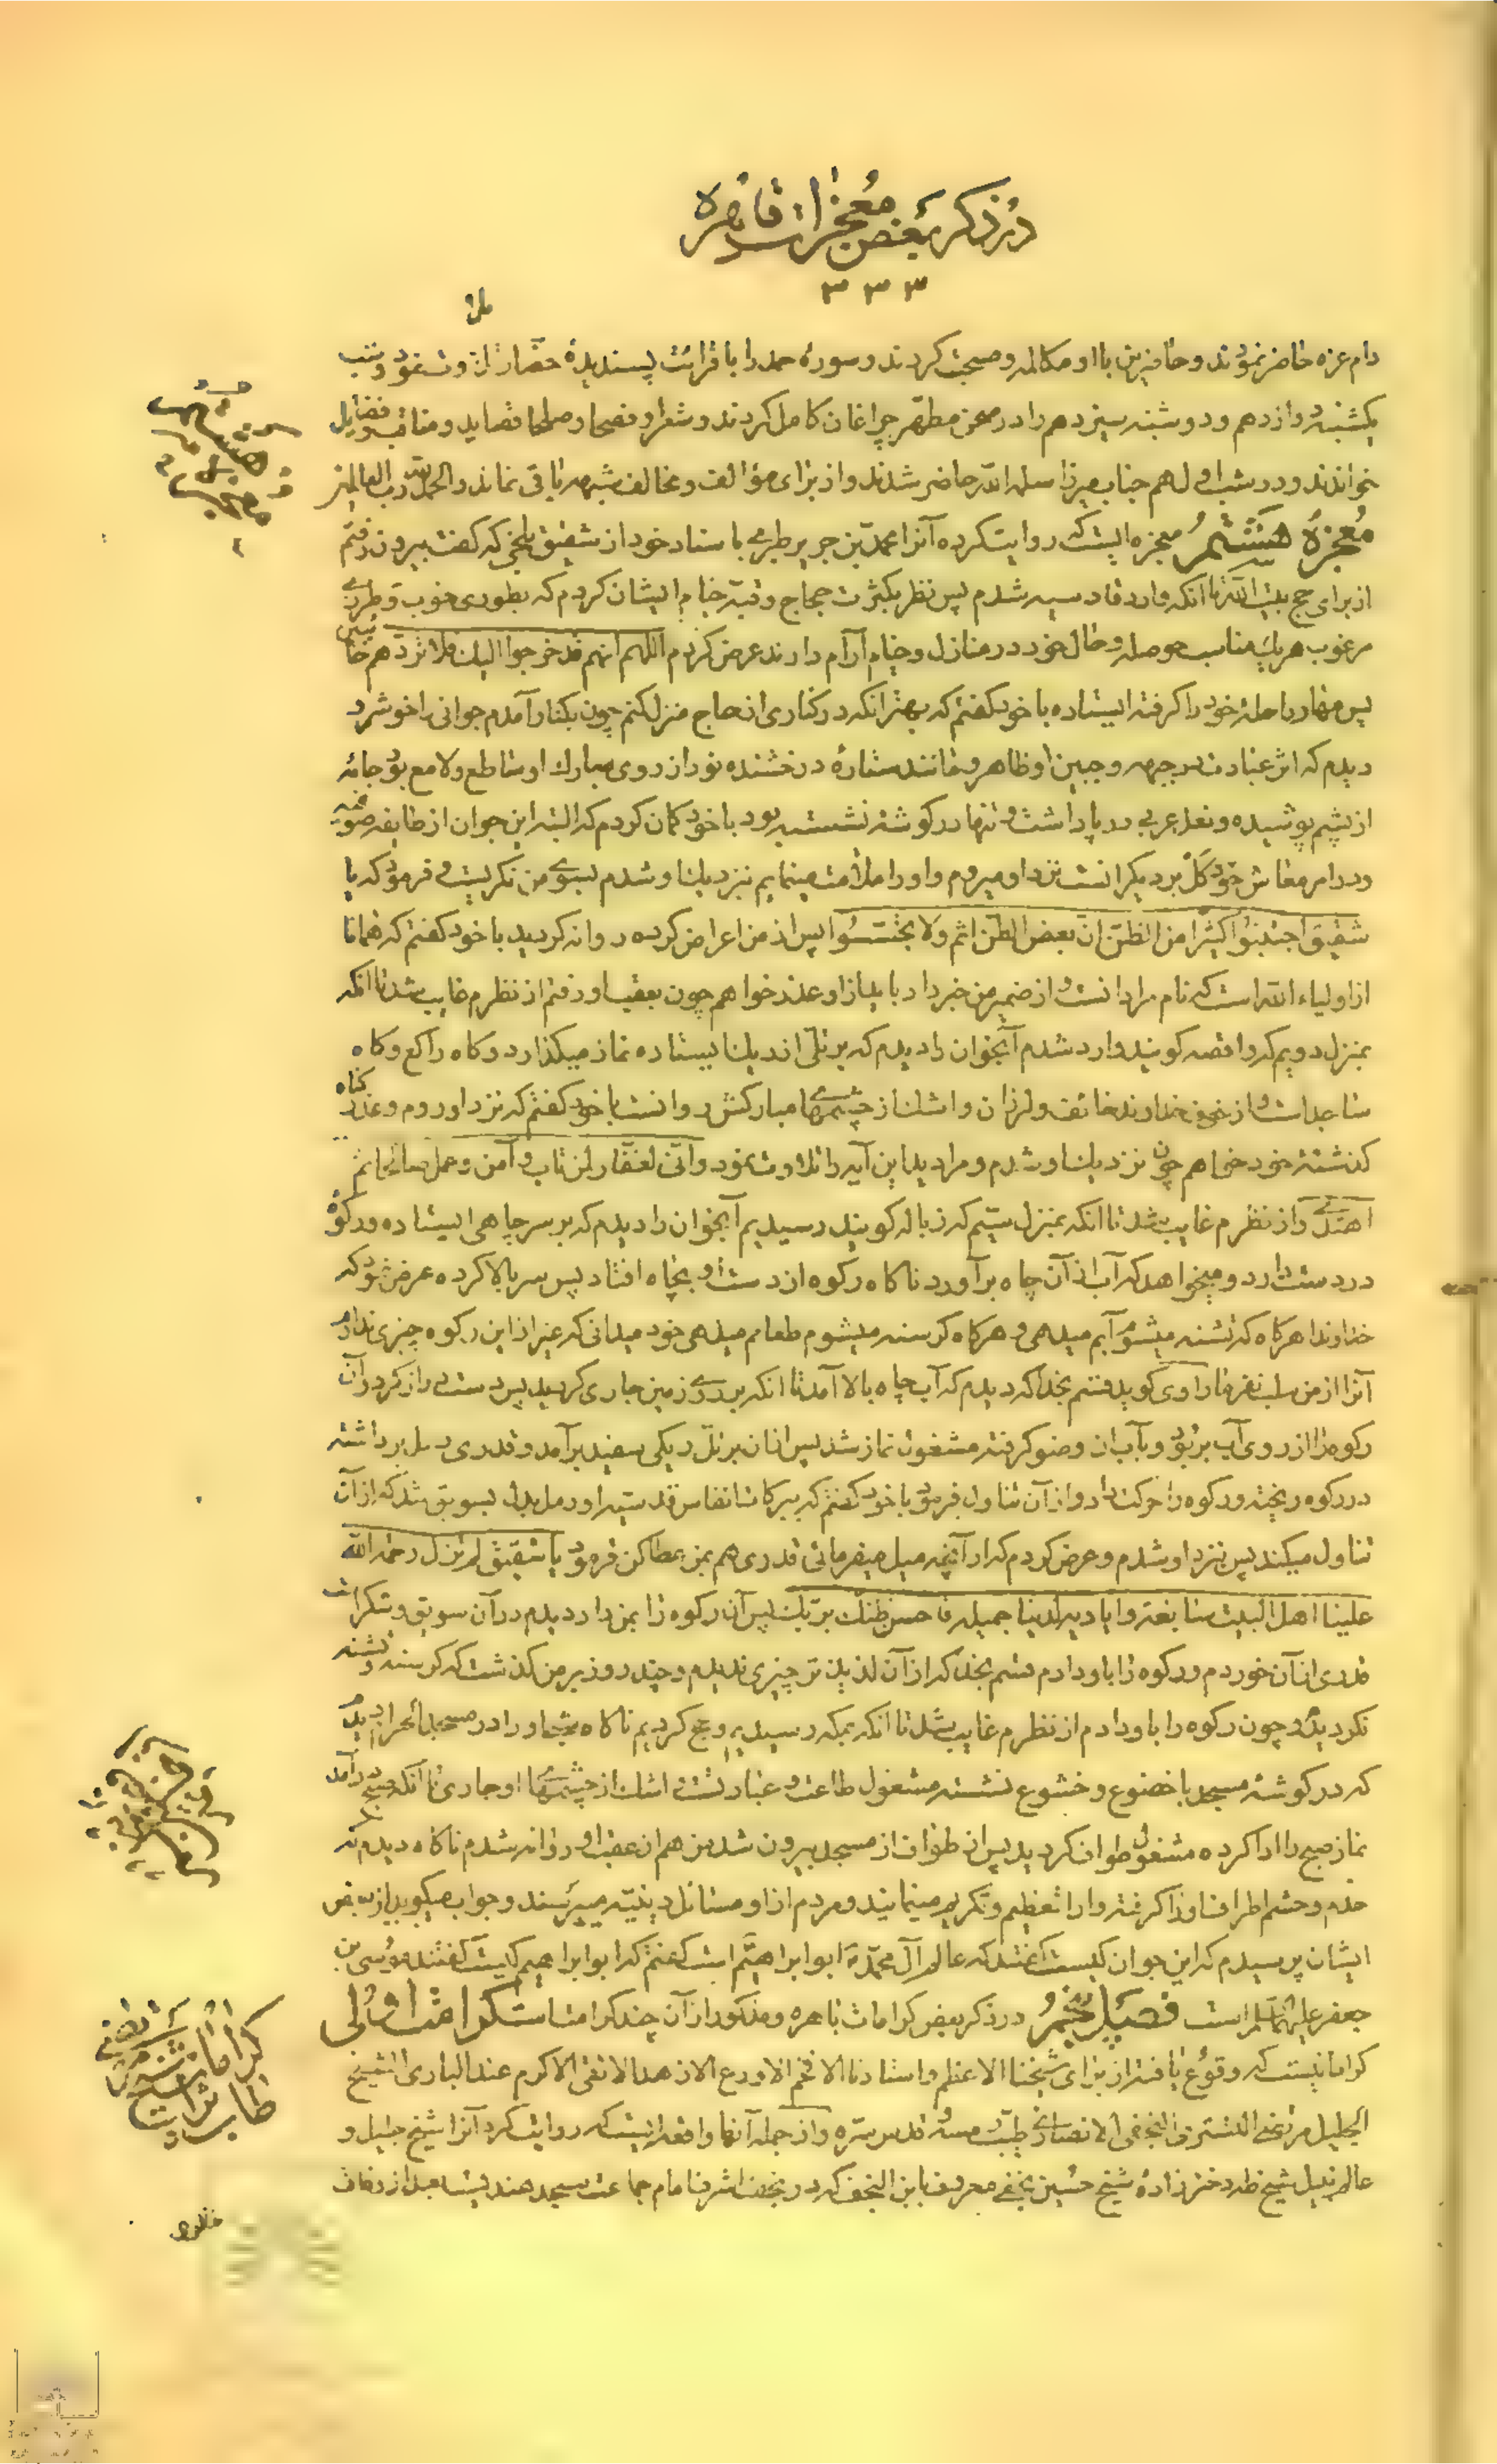 در ذکر بعض معجزات قاهره
۳۳۳
دام عزه حاضر نمودند و حاضرین با او مکالمه و صحبت کردند و سورهٔ حمد را با قرائت پسندیدهٔ حضار تلاوت نمود و شب
یکشنبه دوازدهم و دوشنبه سیزدهم را در صحن مطهر چراغان کامل کردند و شعرا و فصحا و صلحا قصاید و مناقب و فضایل
خواندند و در شب اول هم جناب میرزا سلمه الله حاضر شدند و از برای مؤالف و مخالف شبهه باقی نماند و الحمد لله رب العالمین
معجزهٔ هشتم معجزه ایست که روایت کرده آنرا محمد بن جریر طبری باسناد خود از شقیق بلخی که گفت بیرون رفتم
از برای حج بیت الله تا آنکه وارد قادسیه شدم پس نظر بکثرت حجاج و قبه خیام ایشان کردم که بطوری خوب و طرزی
مرغوب هر یک مناسب حوصله و حال خود در منازل و خیام آرام دارند عرض کردم اللهم انهم قد خرجوا الیک فلا تردهم خائبین
پس مهار راحلهٔ خود را گرفته ایستاده با خود گفتم که بهتر آنکه در کناری از حاج منزل کنم چون بکنار آمدم جوانی را خوشرو
دیدم که اثر عبادت در چهره و جبین او ظاهر و مانند ستارهٔ درخشنده نور از روی مبارک او ساطع و لامع بود جامهٔ
از پشم پوشیده و نعل عربی در پا داشت و تنها در گوشه نشسته بود با خود گمان کردم که البته این جوان از طایفه صوفیه
و در امر معاش خود کَلّ بر دیگرانست نزد او میروم و او را ملامت مینمایم نزدیک او شدم بسوی من نگریست و فرمود که یا
شقیق اجتنبوا کثیرا من الظن ان بعض الظن اثم ولا تجسسوا پس از من اعراض کرده روانه گردید با خود گفتم که همانا
از اولیاء الله است که نام مرا دانست و از ضمیر من خبر داد باید از او عذر خواهم چون بعقب او رفتم از نظرم غایب شد تا آنکه
بمنزل دویم که واقصه گویند وارد شدم آنجوان را دیدم که بر تلی از ریک ایستاده نماز میگذارد و گاه راکع و گاه
ساجد است و از خوف خداوند خائف و لرزان و اشک از چشمهای مبارکش روانست با خود گفتم که نزد او روم و عذر گناه
گذشتهٔ خود خواهم چون نزدیک او شدم و مرا دید این آیه را تلاوت نمود و انی لغفار لمن تاب و آمن و عمل صالحا ثم
اهتدی و از نظرم غایب شد تا آنکه بمنزل سیم که زباله گویند رسیدیم آنجوان را دیدم که بر سر چاهی ایستاده و رکوهٔ
در دست دارد و میخواهد که آب از آن چاه برآورد ناگاه رکوه از دست او بچاه افتاد پس سر بالا کرده عرض نمود که
خداوندا هرگاه که تشنه میشوم آبم میدهی و هرگاه گرسنه میشوم طعامم میدهی خود میدانی که غیر از این رکوه چیزی ندارم
آنرا از من سلب نفرما راوی گوید قسم بخدا که دیدم که آب چاه بالا آمد تا آنکه بر روی زمین جاری گردید پس دست دراز کرد و آن
رکوه را از روی آب بربود و بآب آن وضو گرفته مشغول نماز شد پس از آن بر تل ریکی سفید برآمد و قدری رمل برداشته
در رکوه ریخته و رکوه را حرکت داد و از آن تناول فرمود با خود گفتم که ببرکات انفاس قدسیه او رمل بدل بسویق شد که از آن
تناول میکند پس نزد او شدم و عرض کردم که از آنچه میل میفرمائی قدری هم بمن عطا کن فرمود یا شقیق لم تزل رحمة الله
علینا اهل البیت سابغة و ایادیه لدینا جمیلة فاحسن ظنک بربک پس آن رکوه را بمن داد دیدم در آن سویق و شکر است
قدری از آن خوردم و رکوه را باو دادم قسم بخدا که از آن لذیذتر چیزی ندیدم و چند روز بر من گذشت که گرسنه و تشنه
نگردیدم و چون رکوه را باو دادم از نظرم غایب شد تا آنکه بمکه رسیدیم و حج کردیم ناگاه شبی او را در مسجد الحرام دیدم
که در گوشهٔ مسجد با خضوع و خشوع نشسته مشغول طاعت و عبادتست اشک از چشمهای او جاری تا آنکه صبح درآمد
نماز صبح را ادا کرده مشغول طواف گردید پس از طواف از مسجد بیرون شد من هم از عقب او روانه شدم ناگاه دیدم که
خدم و حشم اطراف او را گرفته و او را تعظیم و تکریم مینمایند و مردم از او مسائل دینیه میپرسند و جواب میگوید از بعض
ایشان پرسیدم که این جوان کیست گفتند که عالم آل محمد ابو ابراهیم است گفتم که ابو ابراهیم کیست گفتند موسی بن
جعفر علیهما السلام است فصل پنجم در ذکر بعض کرامات باهره و مذکور از آن چند کرامت است کرامت اولی
کراماتیست که وقوع یافته از برای شیخنا الاعظم و استادنا الافخم الاورع الازهد الاتقی الاکرم عند الباری الشیخ
الجلیل مرتضی التستری النجفی الانصاری طیب رمسه و قدس سره و از جمله آنها واقعه ایست که روایت کرد آنرا شیخ جلیل و
عالم نبیل شیخ طه دخترزادهٔ شیخ حسین نجفی معروف بابن النجف که در نجف اشرف امام جماعت مسجد هندیست بعد از وفات